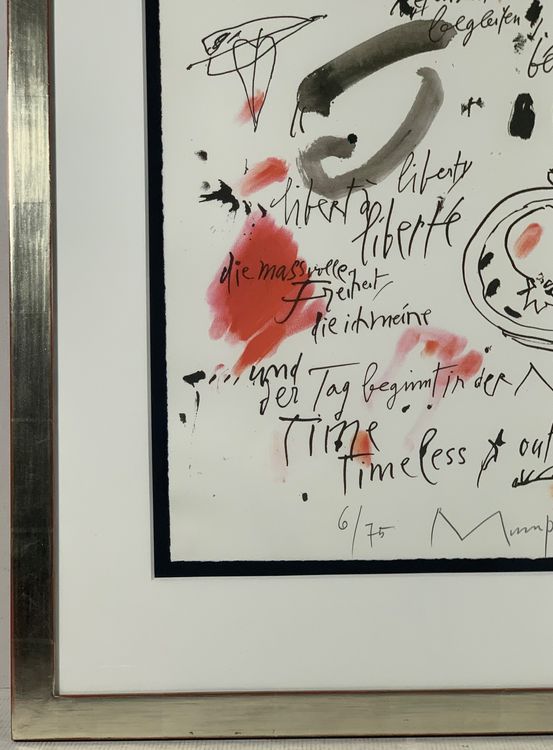 begleiten
liberty
libertà
liberté
die massvolle
Freiheit
die ich meine
und
der Tag beginnt in der
TIME
Timeless
out
6/75